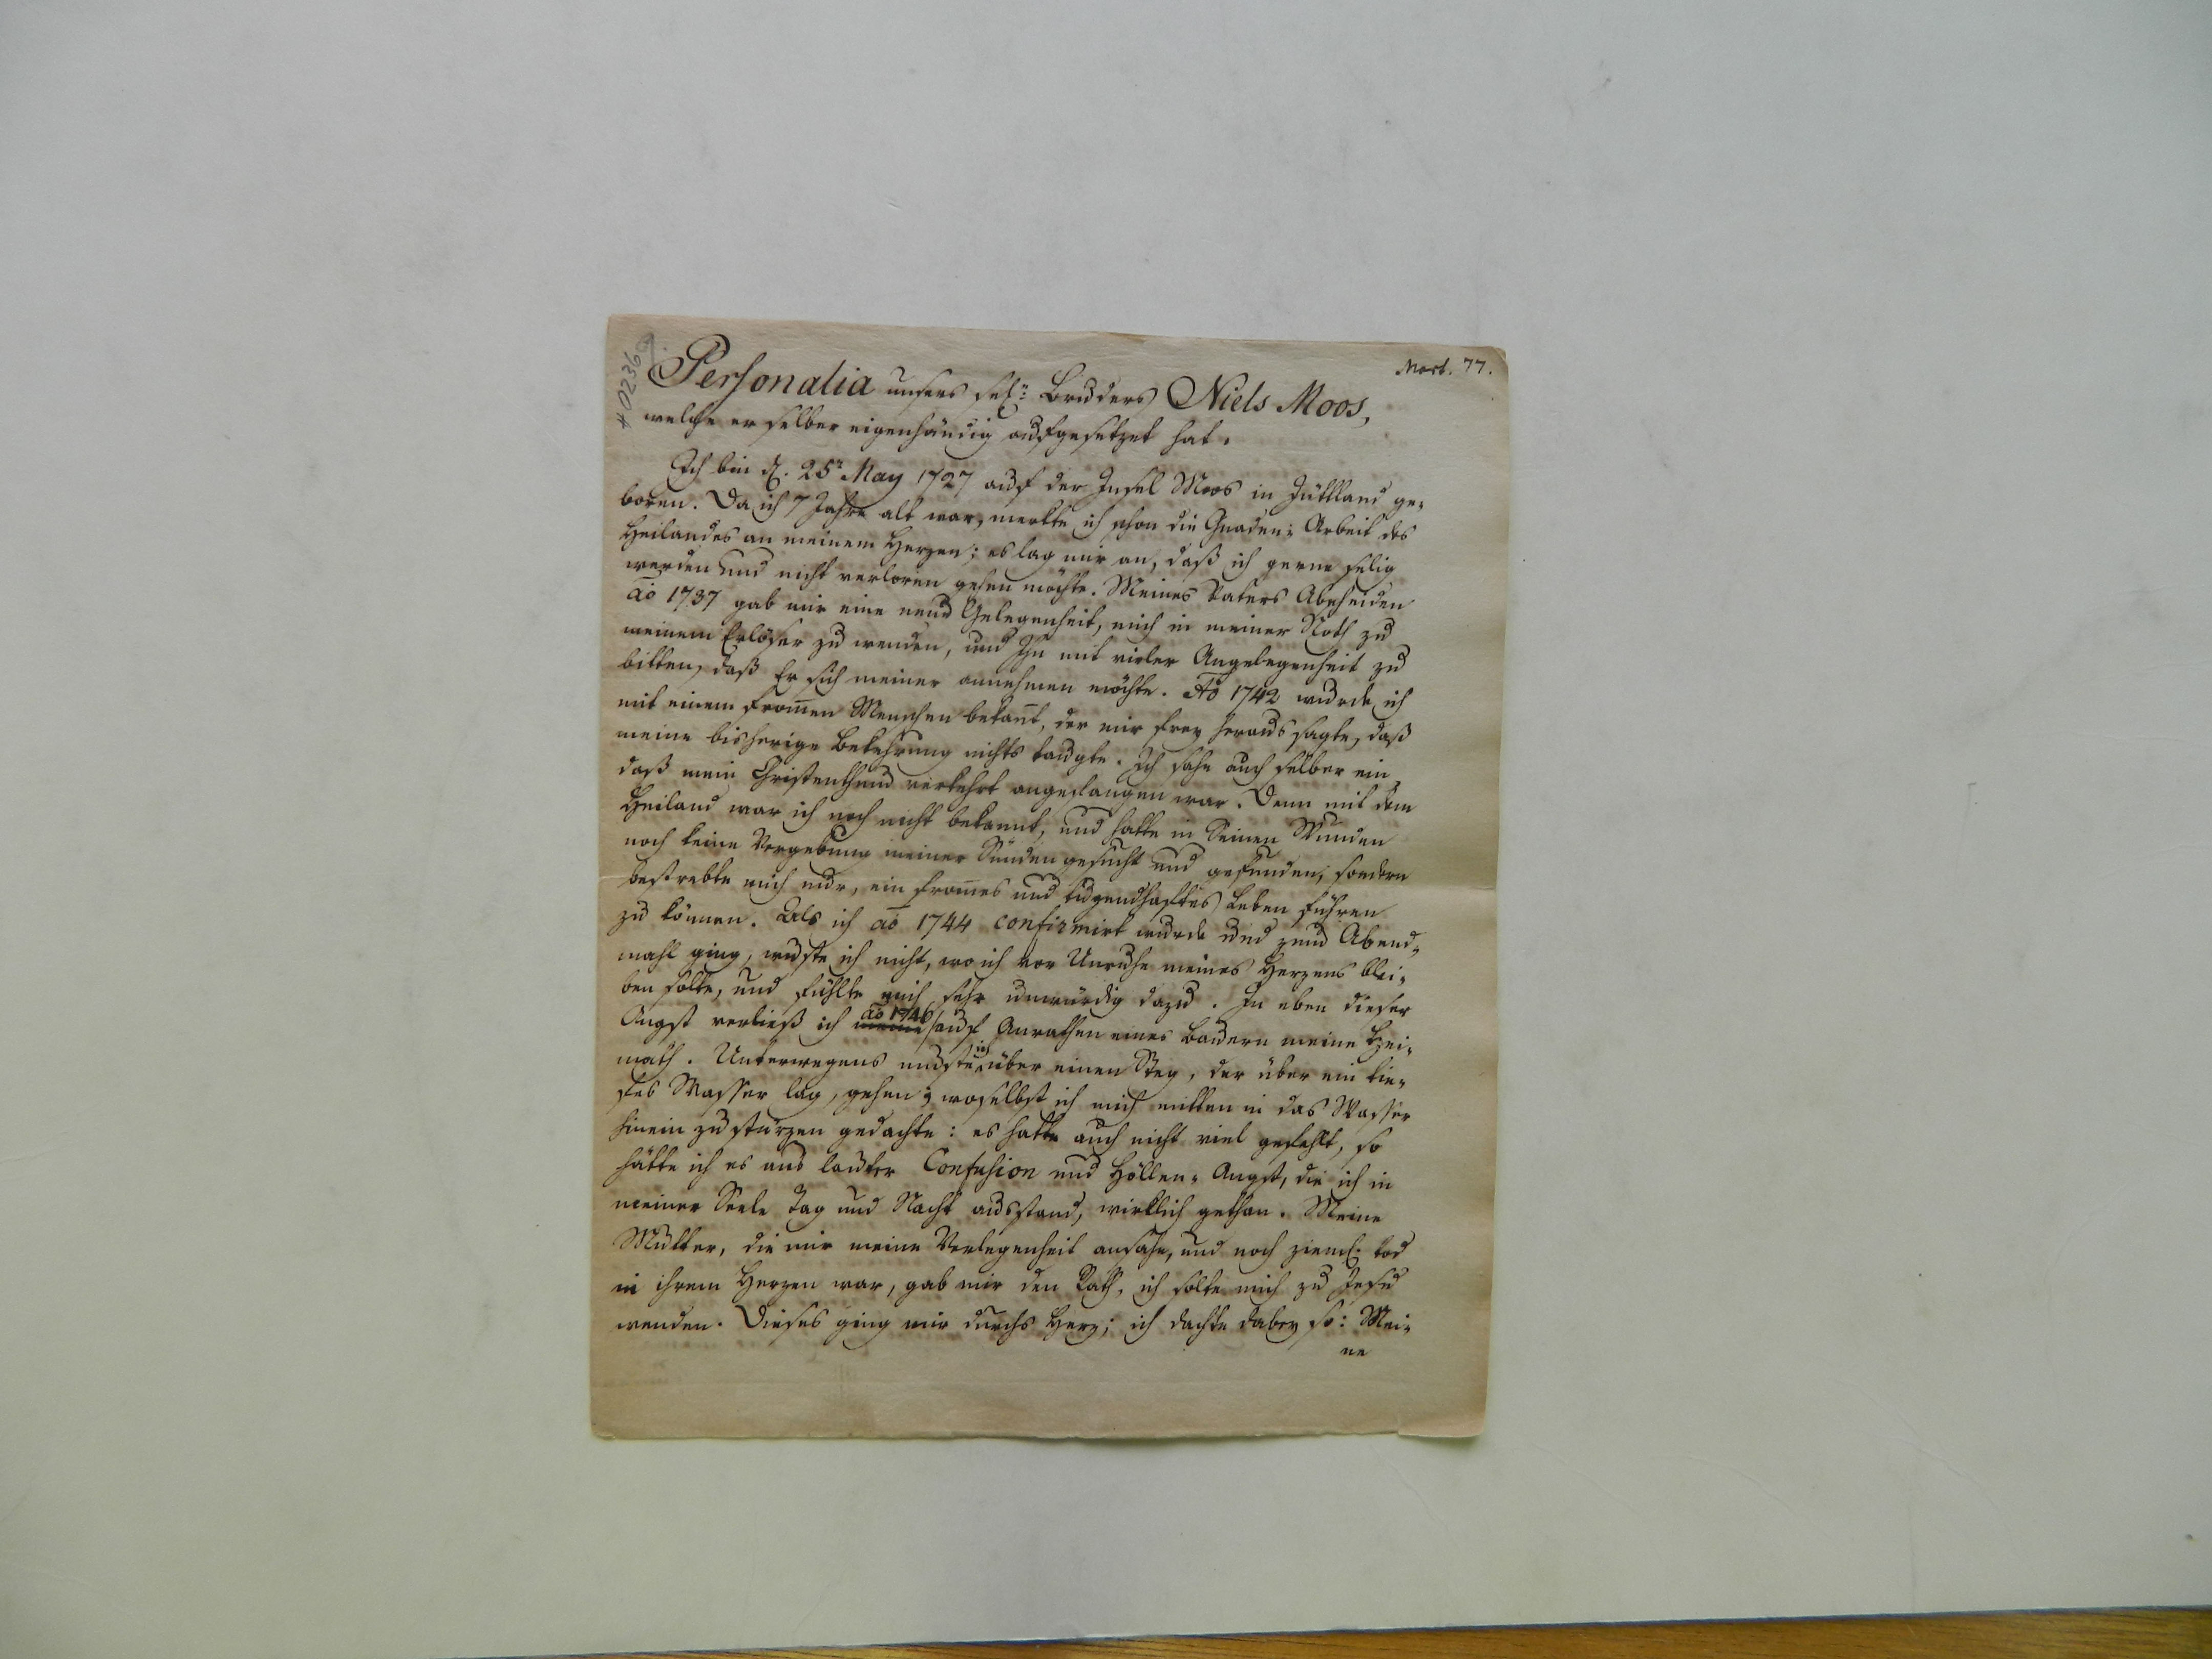 Mort. 77.
#0236
Personalia unsers sel: Bruders Niels Moos,
welche er selber eigenhändig aufgesetzet hat.
Ich bin d. 25t May 1727 auf der Insel Moos in Jüttland ge-
boren. Da ich 7 Jahre alt war, merkte ich schon die Gnaden-Arbeit des
Heilandes an meinem Herzen; es lag mir an, daß ich gerne selig
werden und nicht verloren gehen möchte. Meines Vaters Abscheiden
ao 1737 gab mir eine neue Gelegenheit, mich in meiner Noth zu
meinem Erlöser zu wenden, und Ihn mit vieler Angelegenheit zu
bitten, daß Er sich meiner annehmen möchte. Ao 1742 wurde ich
mit einem from̄en Menschen bekan̄t, der mir frey heraus sagte, daß
meine bisherige Bekehrung nichts taugte. Ich sahe auch selber ein,
daß mein Christenthum verkehrt angefangen war. Denn mit dem
Heiland war ich noch nicht bekannt, und hatte in Seinen Wunden
noch keine Vergebung meiner Sünden gesucht und gefunden, sondern
bestrebte mich nur, ein from̄es und tugendhaftes Leben führen
zu können. Als ich ao 1744 confirmirt wurde und zum Abend-
mahl ging, wuste ich nicht, wo ich vor Unruhe meines Herzens blei-
ben solte, und fühlte mich sehr unwürdig dazu. In eben dieser
Angst verließ ich meine ao 1746 auf Anrathen eines Bauern meine Hei-
math. Unterwegens muste ich über einen Steg, der über ein tie-
fes Wasser lag, gehen; woselbst ich mich mitten in das Wasser
hinein zu stürzen gedachte: es hatte auch nicht viel gefehlt, so
hätte ich es aus lauter Confusion und Höllen-Angst, die ich in
meiner Seele Tag und Nacht ausstand, wirklich gethan. Meine
Mutter, die mir meine Verlegenheit ansahe, und noch zieml. tod
in ihrem Herzen war, gab mir den Rath, ich solte mich zu Jesu
wenden. Dieses ging mir durchs Herz; ich dachte dabey so: Mei-
ne